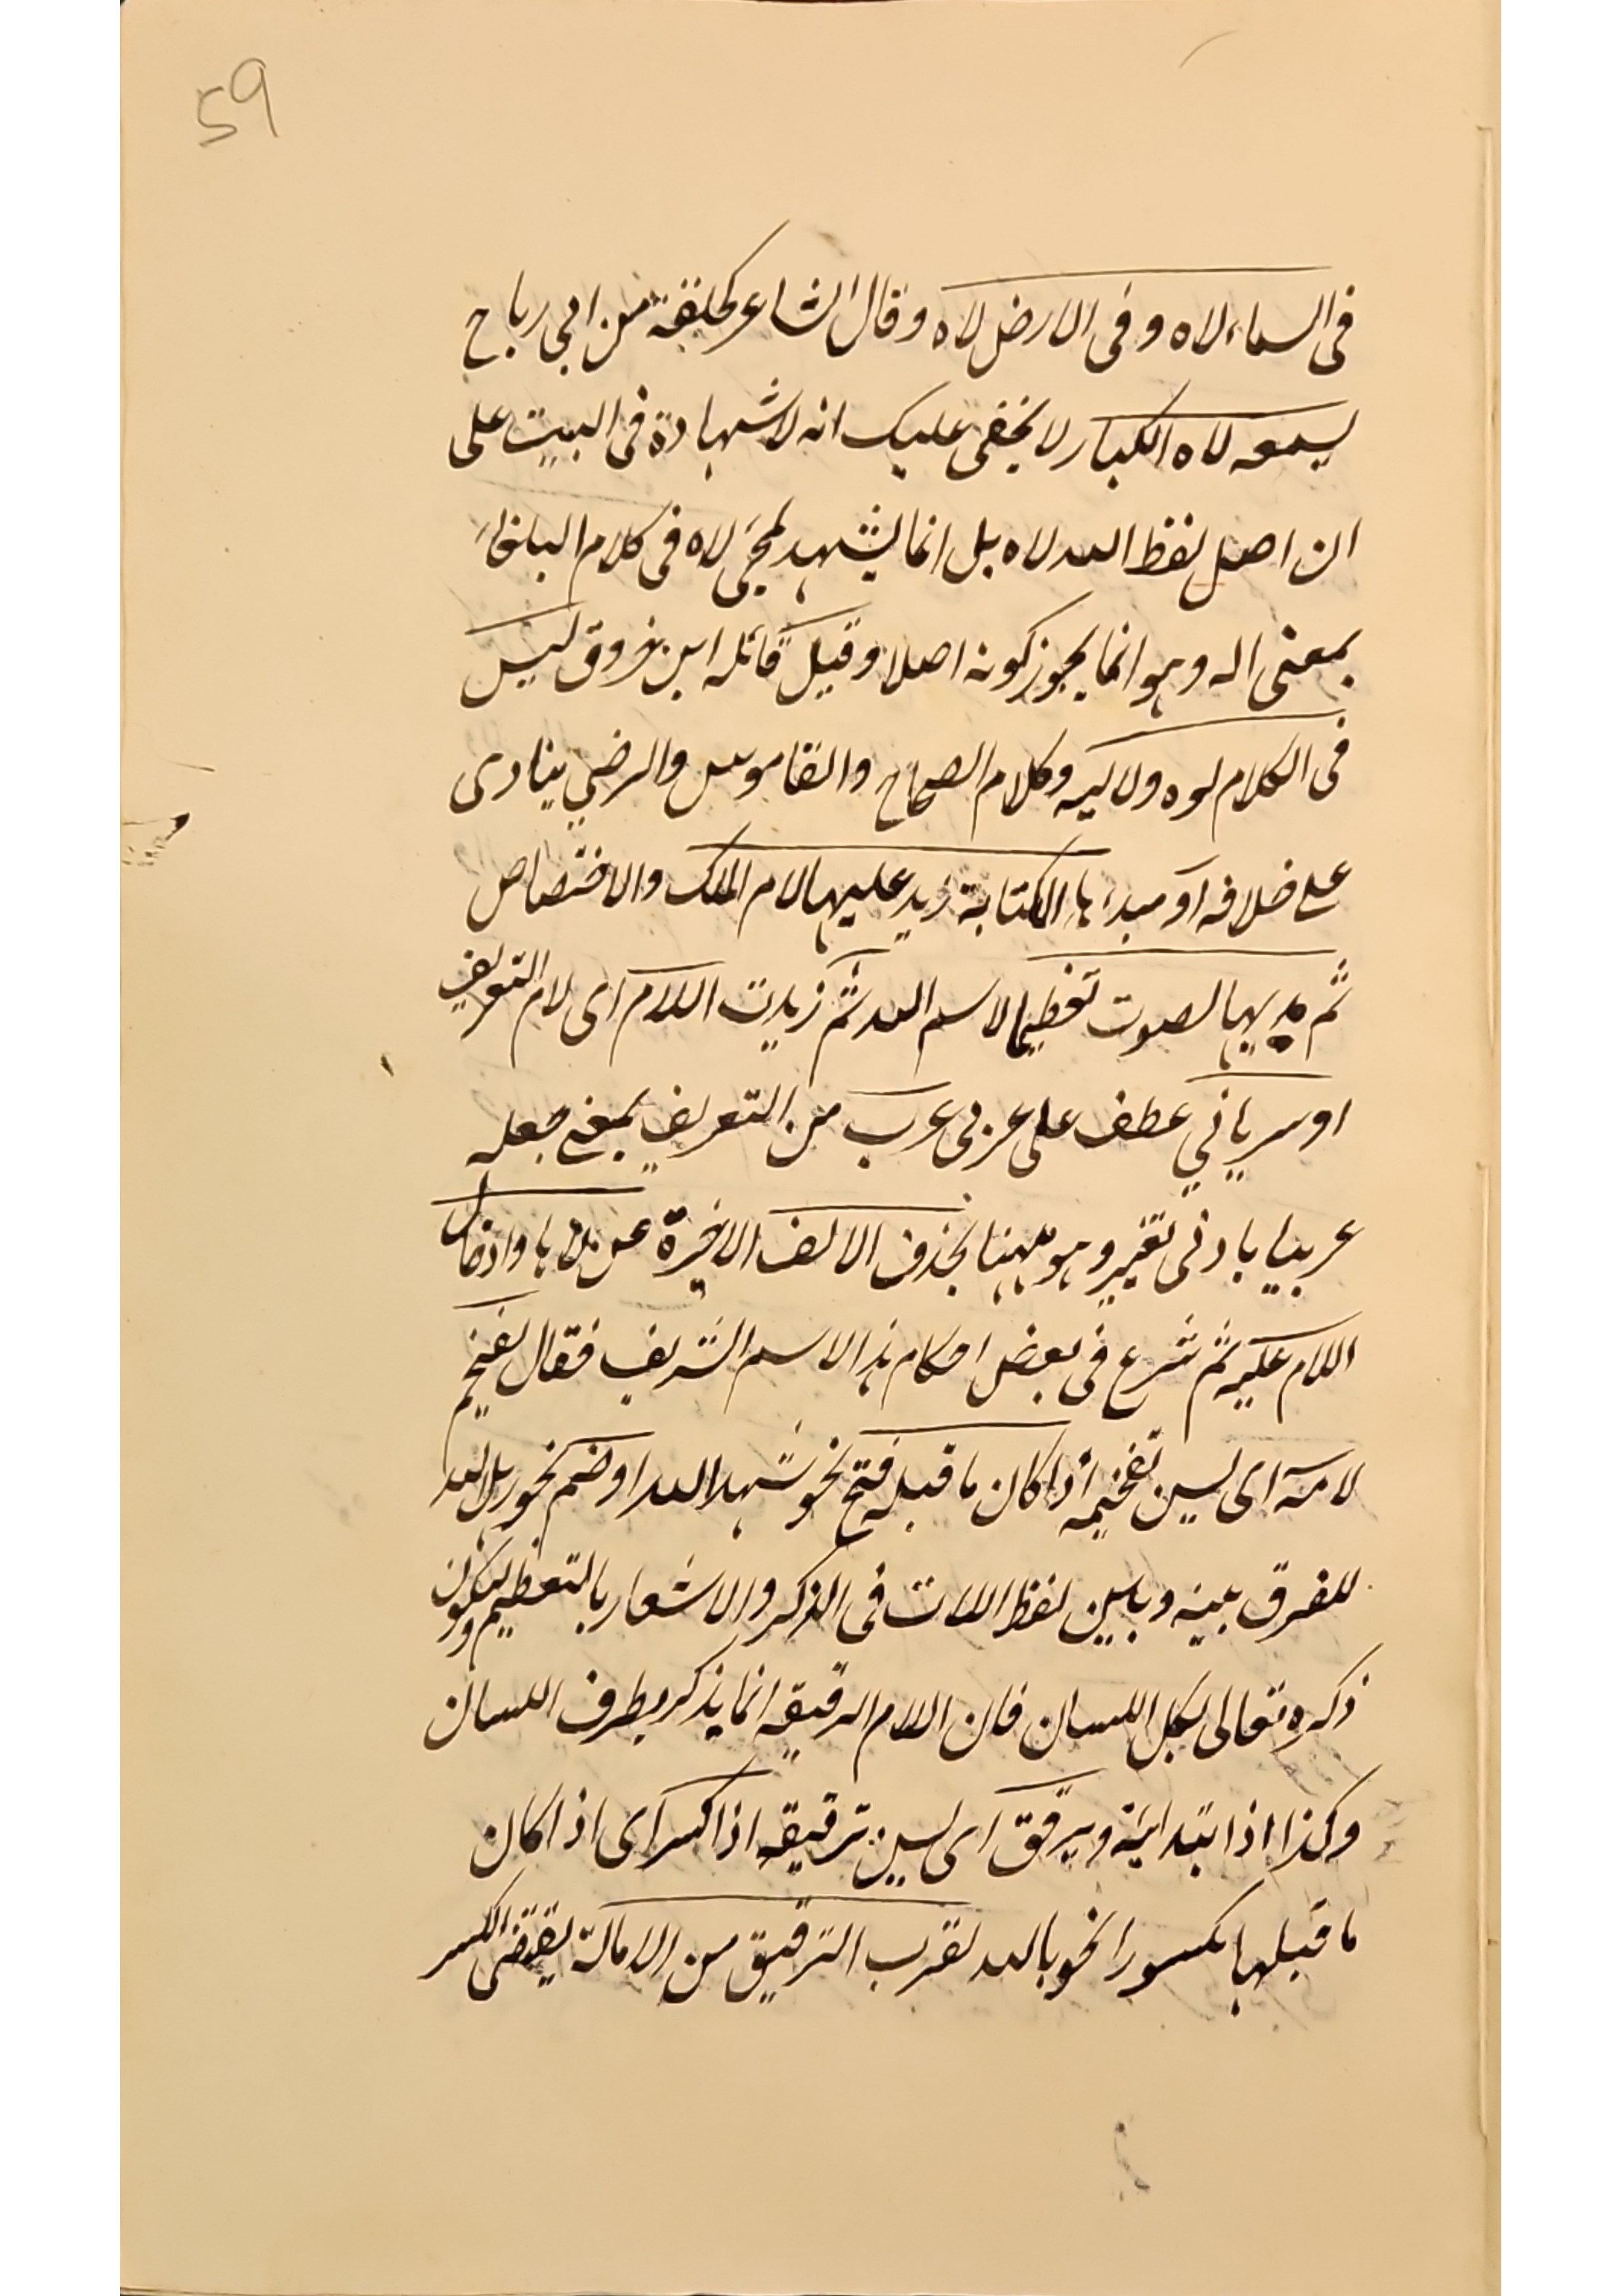 59
فى السماء لاه وفى الارض لاه وقال الشاعر كحلفة من ابي رباح
يسمعه لاه الكبار لا يخفى عليك انه لا شهادة فى البيت على
ان اصل لفظ الله لاه بل انما يشهد لمجئ لاه فى كلام البلغاء
بمعنى اله وهو انما يجوز كونه اصلا وقيل قائله ابن خروق ليس
فى الكلام لوه ولا ليه وكلام الصحاح والقاموس والرضي ينادى
على خلافه او مبدء هاء الكتابة زيد عليها لام الملك والاختصاص
ثم مد بها الصوت تعظيما لاسم الله ثم زيدت اللام اى لام التعريف
او سرياني عطف على عربى عرب من التعريف بمعنى جعله
عربيا بادنى تغيير وهو ههنا بحذف الالف الاخيرة عن لاها وادخال
اللام عليه ثم شرع فى بعض احكام هذا الاسم الشريف فقال تفخيم
لامه اى يسن تفخيمه اذا كان ما قبله فتح نحو شهد الله او ضم نحو رسل الله
للفرق بينه وبين لفظ اللات فى الذكر والاشعار بالتعظيم وليكون
ذكره تعالى بكل اللسان فان اللام الرقيقه انما يذكر بطرف اللسان
وكذا اذا ابتدائية ويرقق اى يسن ترقيقه اذا كسر اى اذا كان
ما قبلها مكسورا نحو بالله لقرب الترقيق من الامالة يقتضى الكسر